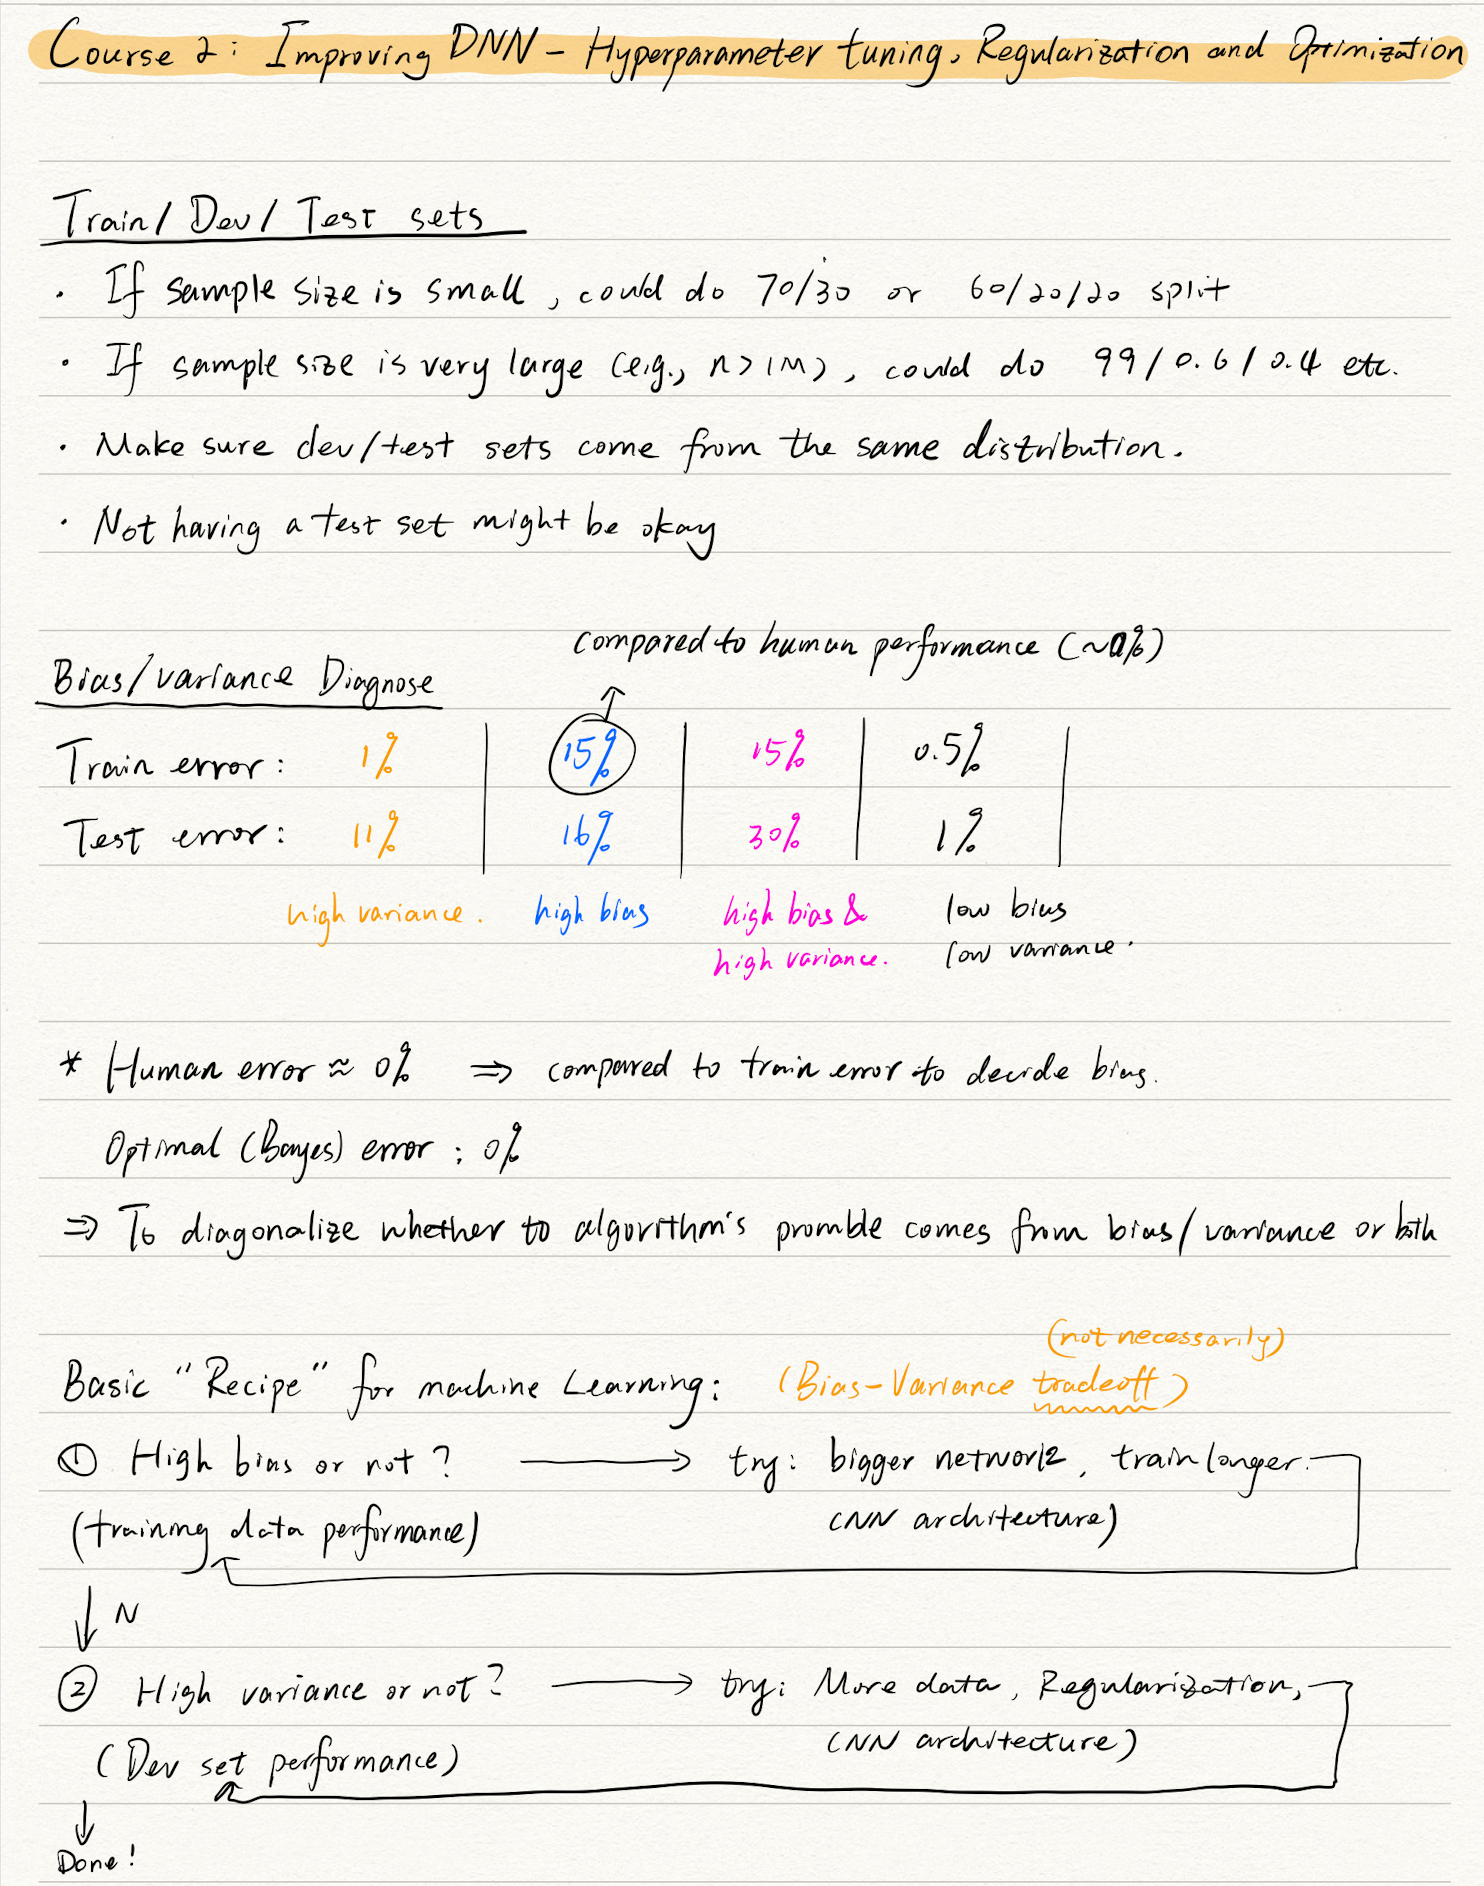 Course 2: Improving DNN - Hyperparameter tuning, Regularization and Optimization
Train/Dev/Test sets
· If sample size is small, could do 70/30 or 60/20/20 split
· If sample size is very large (e.g., n>1M), could do 99/0.6/0.4 etc.
· Make sure dev/test sets come from the same distribution.
· Not having a test set might be okay
compared to human performance (~0%)
Bias/variance Diagnose
Train error: 1% 15% 15% 0.5%
Test error: 11% 16% 30% 1%
high variance. high bias high bias & low bias
high variance. low variance.
* Human error ≈ 0% ⇒ compared to train error to decide bias.
Optimal (Bayes) error : 0%
⇒ To diagonalize whether to algorithm's promble comes from bias/variance or both
(not necessarily)
Basic "Recipe" for machine Learning: (Bias-Variance tradeoff)
① High bias or not? → try: bigger network, train longer.
(training data performance) (NN architecture)
↓ N
② High variance or not? → try: More data, Regularization,
(Dev set performance) (NN architecture)
↓
Done!